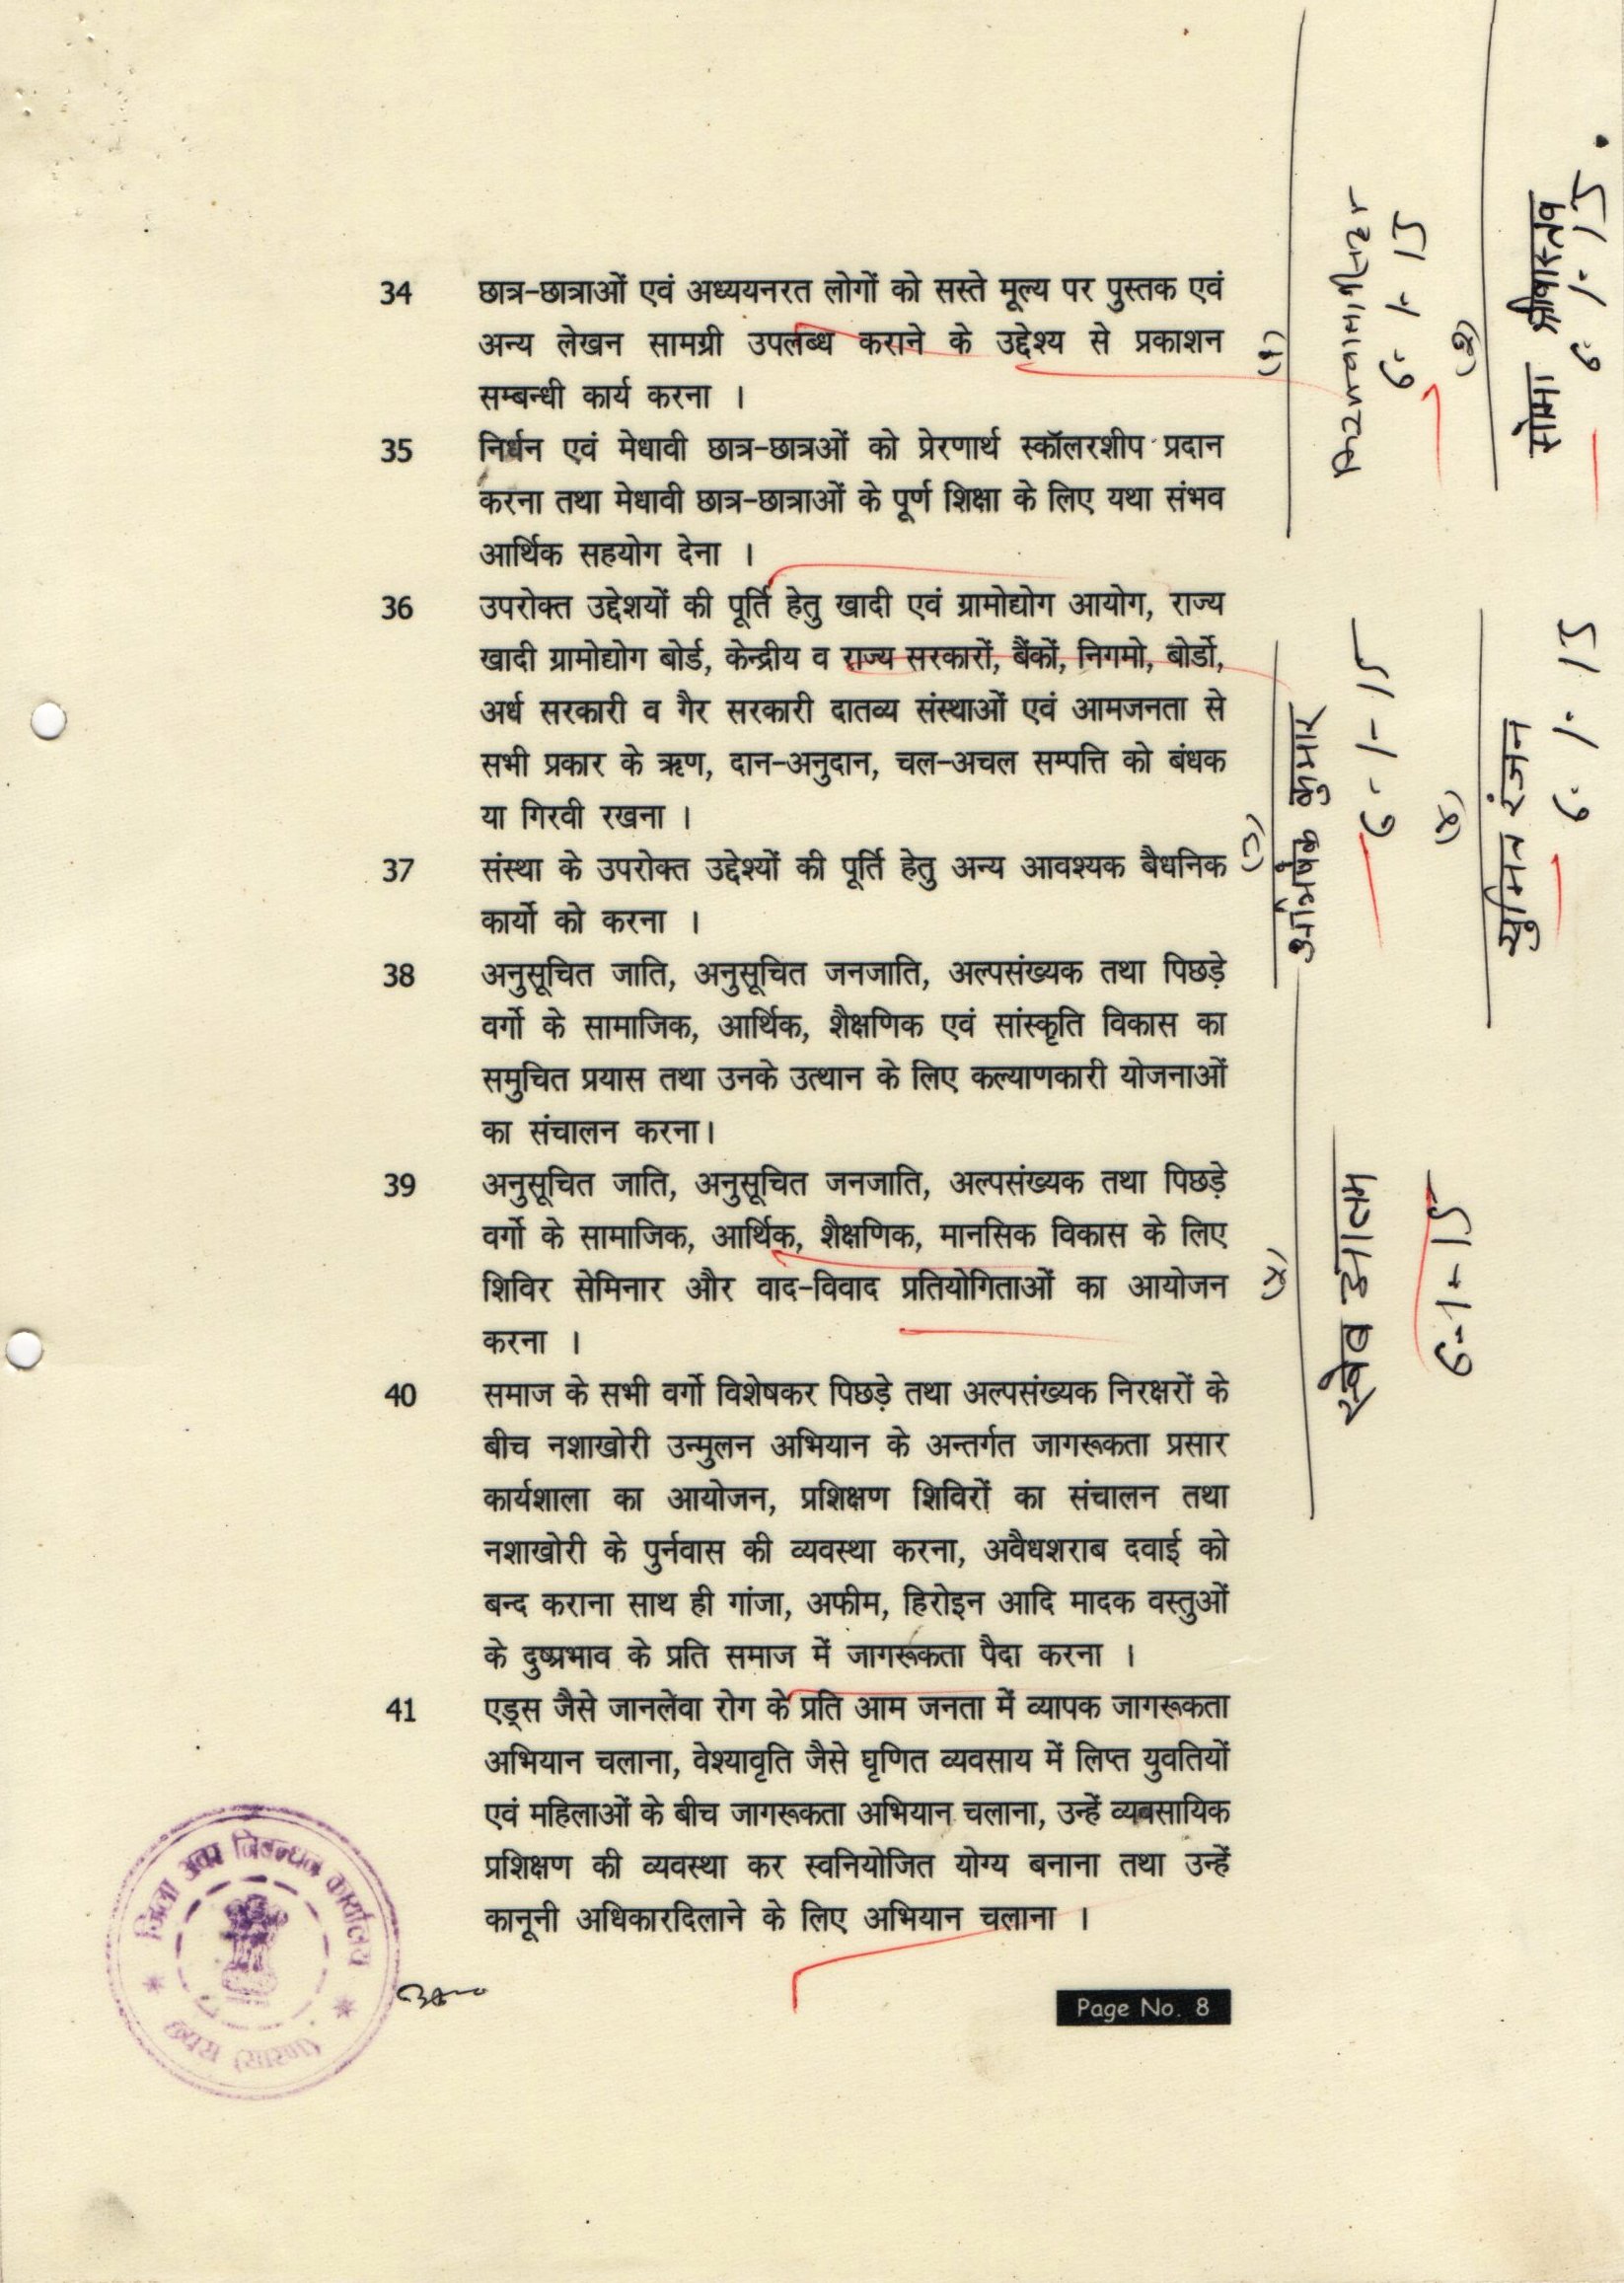 34 छात्र-छात्राओं एवं अध्ययनरत लोगों को सस्ते मूल्य पर पुस्तक एवं
अन्य लेखन सामग्री उपलब्ध कराने के उद्देश्य से प्रकाशन
सम्बन्धी कार्य करना ।
35 निर्धन एवं मेधावी छात्र-छात्रओं को प्रेरणार्थ स्कॉलरशीप प्रदान
करना तथा मेधावी छात्र-छात्राओं के पूर्ण शिक्षा के लिए यथा संभव
आर्थिक सहयोग देना ।
36 उपरोक्त उद्देशयों की पूर्ति हेतु खादी एवं ग्रामोद्योग आयोग, राज्य
खादी ग्रामोद्योग बोर्ड, केन्द्रीय व राज्य सरकारों, बैंकों, निगमो, बोर्डो,
अर्ध सरकारी व गैर सरकारी दातव्य संस्थाओं एवं आमजनता से
सभी प्रकार के ऋण, दान-अनुदान, चल-अचल सम्पत्ति को बंधक
या गिरवी रखना ।
37 संस्था के उपरोक्त उद्देश्यों की पूर्ति हेतु अन्य आवश्यक बैधनिक
कार्यो को करना ।
38 अनुसूचित जाति, अनुसूचित जनजाति, अल्पसंख्यक तथा पिछड़े
वर्गो के सामाजिक, आर्थिक, शैक्षणिक एवं सांस्कृति विकास का
समुचित प्रयास तथा उनके उत्थान के लिए कल्याणकारी योजनाओं
का संचालन करना।
39 अनुसूचित जाति, अनुसूचित जनजाति, अल्पसंख्यक तथा पिछड़े
वर्गो के सामाजिक, आर्थिक, शैक्षणिक, मानसिक विकास के लिए
शिविर सेमिनार और वाद-विवाद प्रतियोगिताओं का आयोजन
करना ।
40 समाज के सभी वर्गो विशेषकर पिछड़े तथा अल्पसंख्यक निरक्षरों के
बीच नशाखोरी उन्मुलन अभियान के अन्तर्गत जागरूकता प्रसार
कार्यशाला का आयोजन, प्रशिक्षण शिविरों का संचालन तथा
नशाखोरी के पुर्नवास की व्यवस्था करना, अवैधशराब दवाई को
बन्द कराना साथ ही गांजा, अफीम, हिरोइन आदि मादक वस्तुओं
के दुष्प्रभाव के प्रति समाज में जागरूकता पैदा करना ।
41 एड्स जैसे जानलेवा रोग के प्रति आम जनता में व्यापक जागरूकता
अभियान चलाना, वेश्यावृति जैसे घृणित व्यवसाय में लिप्त युवतियों
एवं महिलाओं के बीच जागरूकता अभियान चलाना, उन्हें व्यवसायिक
प्रशिक्षण की व्यवस्था कर स्वनियोजित योग्य बनाना तथा उन्हें
कानूनी अधिकारदिलाने के लिए अभियान चलाना ।
Page No. 8
जिला अवर निबन्धन कार्यालय
(1)
6-1-15
(2)
सोमा श्रीवास्तव
6.1.15
(3)
अभिषेक कुमार
6-1-15
(4)
सुमित रंजन
6.1.15
(5)
आलम
6-1-15